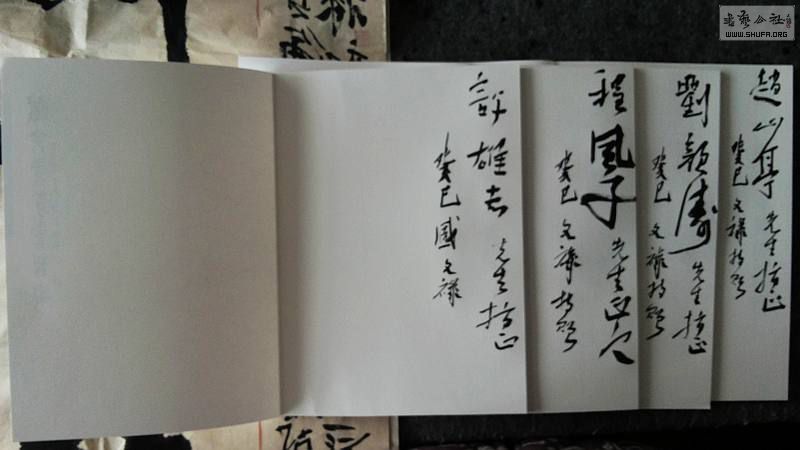 書藝公社
WWW.SHUFA.ORG
趙山亭先生指正
癸巳文祿
劉顏濤先生指正
癸巳文祿
程風子先生正
癸巳文祿
許雄志先生指正
癸巳國文祿